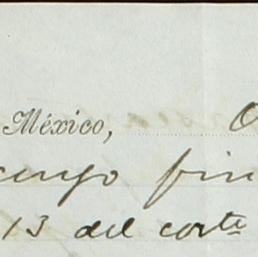 México, O
cuyo fin
13 del corte